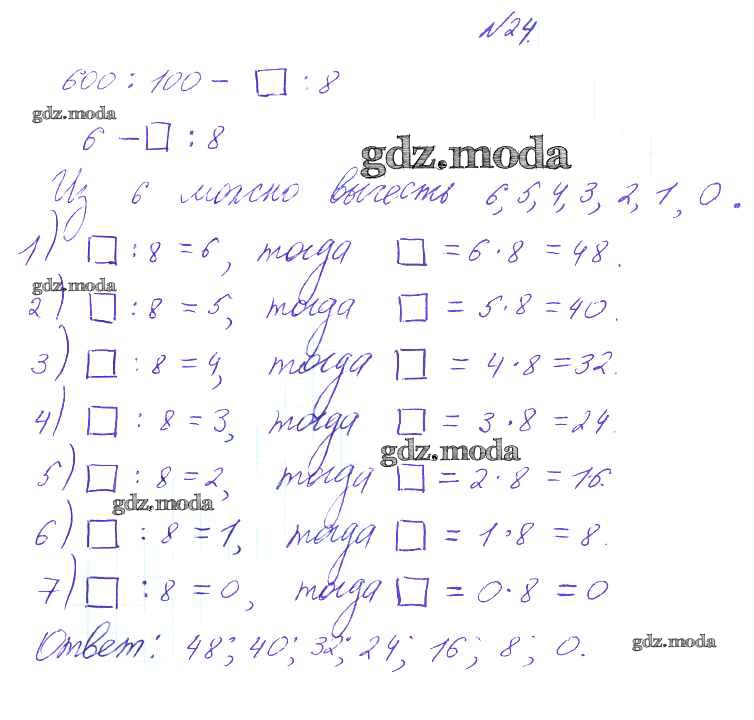 №24.
600 : 100 - □ : 8
gdz.moda
6 - □ : 8
gdz.moda
Из 6 можно вычесть 6, 5, 4, 3, 2, 1, 0.
1) □ : 8 = 6, тогда □ = 6 · 8 = 48.
gdz.moda
2) □ : 8 = 5, тогда □ = 5 · 8 = 40.
3) □ : 8 = 4, тогда □ = 4 · 8 = 32.
4) □ : 8 = 3, тогда □ = 3 · 8 = 24.
gdz.moda
5) □ : 8 = 2, тогда □ = 2 · 8 = 16.
gdz.moda
6) □ : 8 = 1, тогда □ = 1 · 8 = 8.
7) □ : 8 = 0, тогда □ = 0 · 8 = 0
Ответ: 48; 40; 32; 24; 16; 8; 0.
gdz.moda